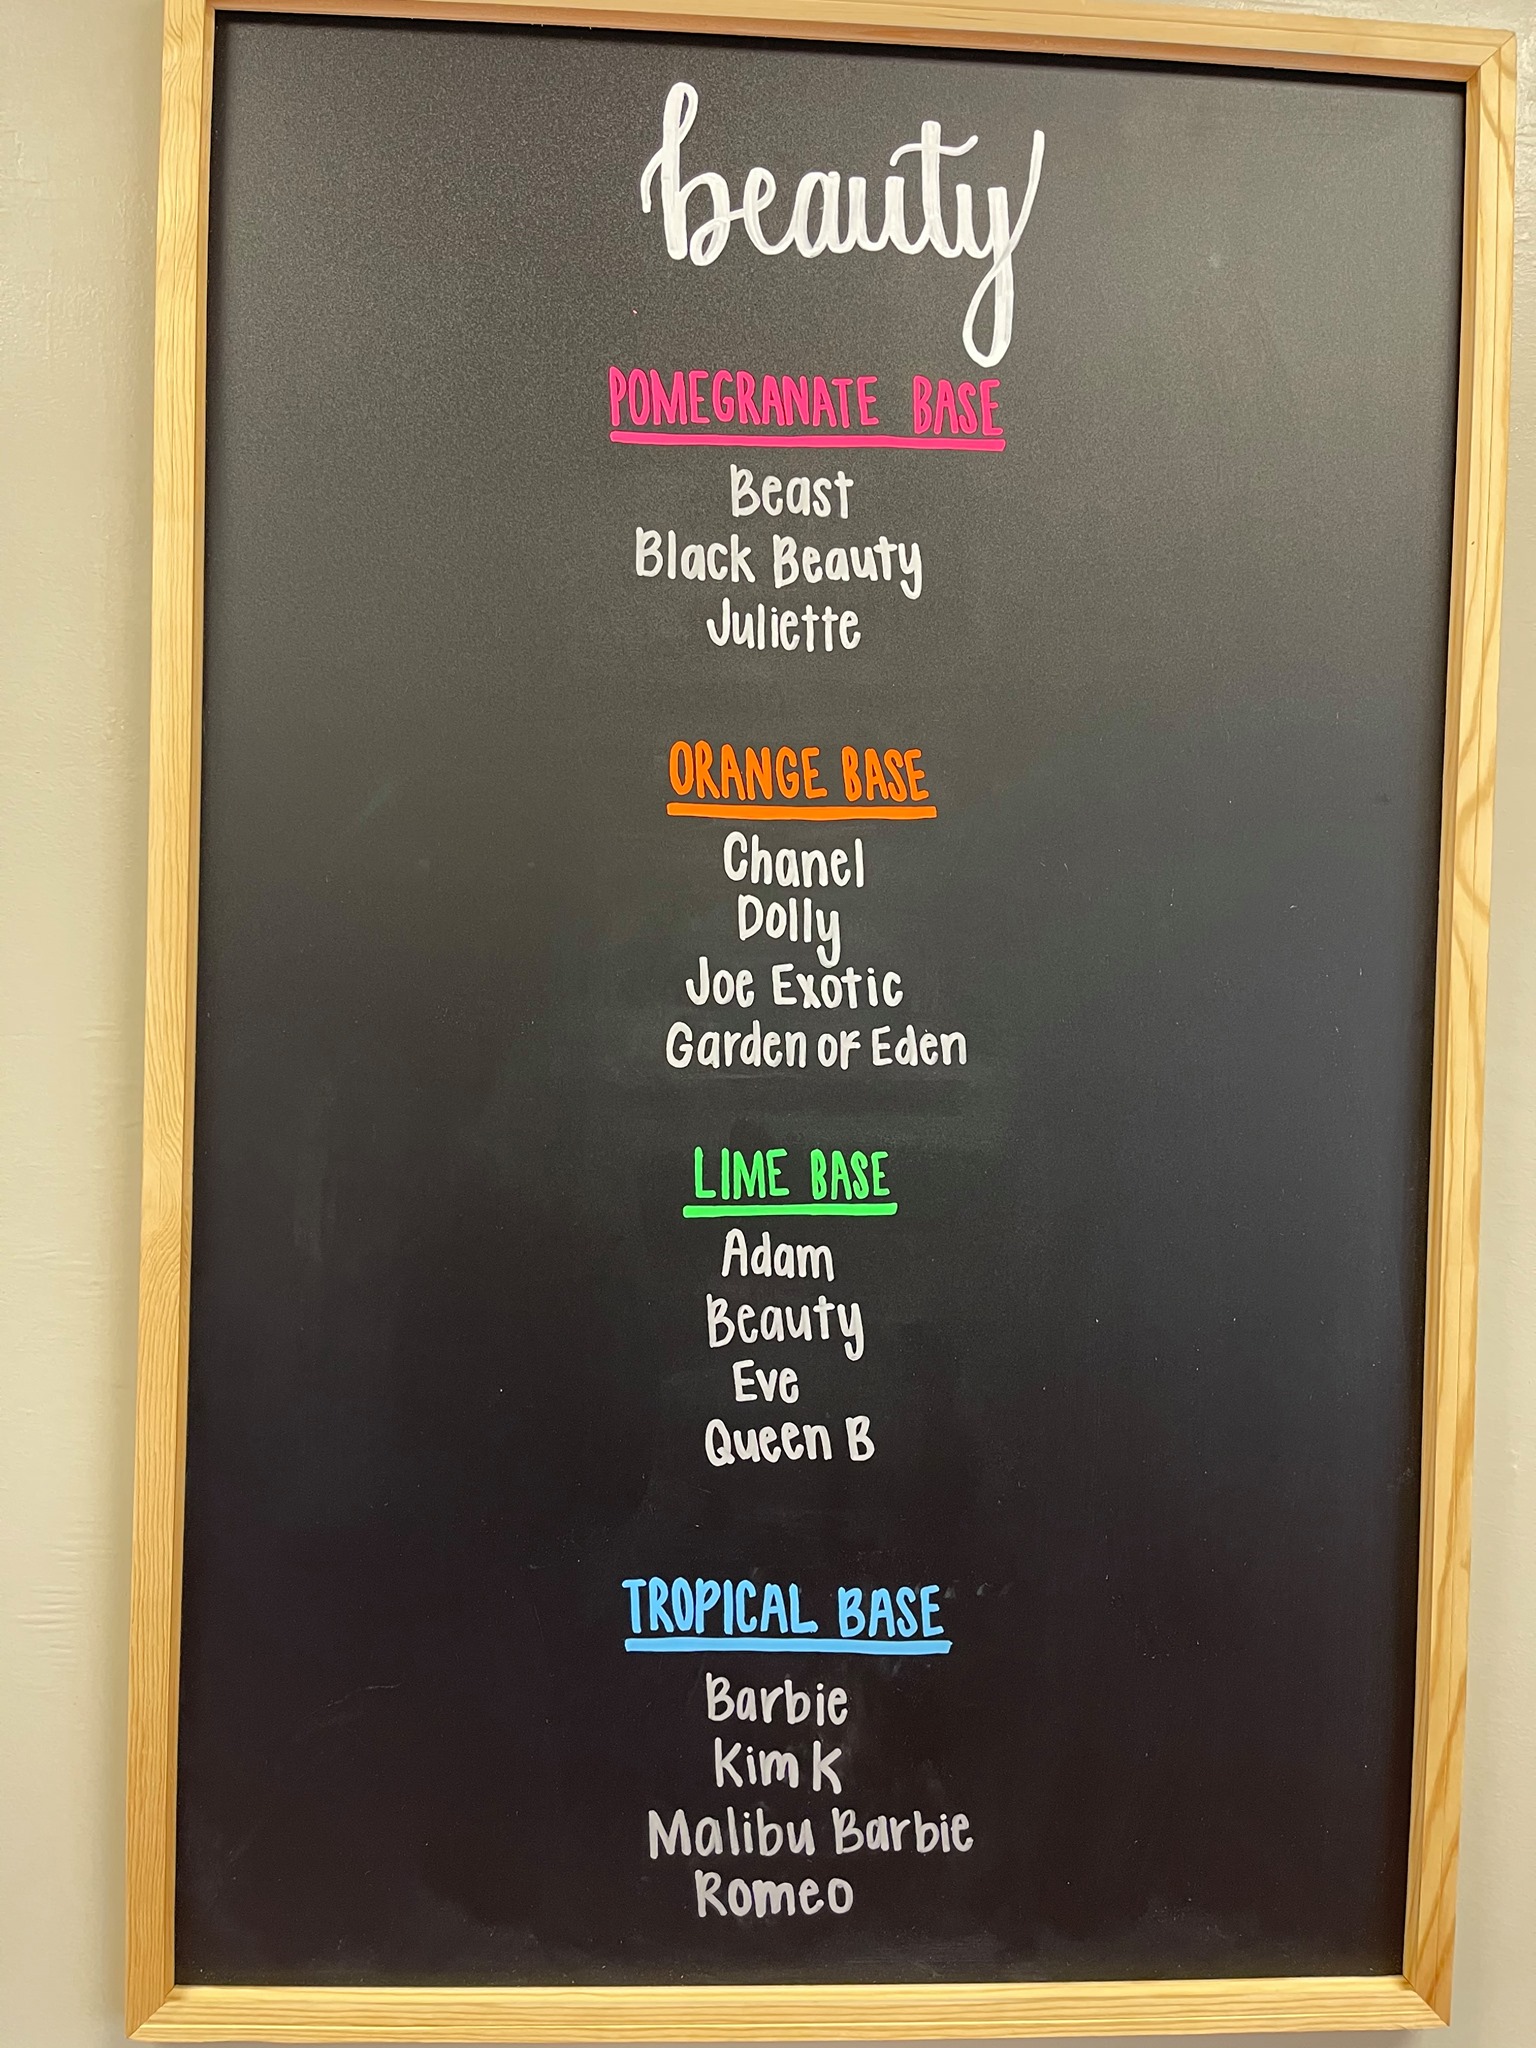 beauty
POMEGRANATE BASE
Beast
Black Beauty
Juliette
ORANGE BASE
Chanel
Dolly
Joe Exotic
Garden of Eden
LIME BASE
Adam
Beauty
Eve
Queen B
TROPICAL BASE
Barbie
Kim K
Malibu Barbie
Romeo